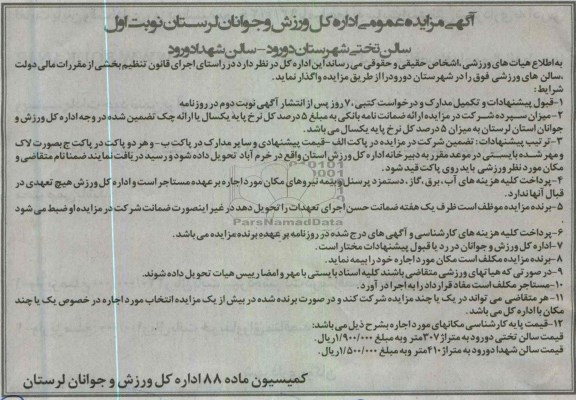 آگهی مزایده عمومی اداره کل ورزش و جوانان لرستان نوبت اول
سالن تختی شهرستان دورود - سالن شهدا دورود
به اطلاع هیات های ورزشی، اشخاص حقیقی و حقوقی می رساند این اداره کل در نظر دارد در راستای اجرای قانون تنظیم بخشی از مقررات مالی دولت
،سالن های ورزشی فوق را در شهرستان دورود را از طریق مزایده واگذار نماید.
شرایط :
۱-قبول پیشنهادات و تکمیل مدارک و درخواست کتبی، ۷۰ روز پس از انتشار آگهی نوبت دوم در روزنامه
۲- میزان سپرده شرکت در مزایده ارائه ضمانت نامه بانکی به مبلغ ۵ درصد کل نرخ پایه یکسال یا ارائه چک تضمین شده در وجه اداره کل ورزش و
جوانان استان لرستان به میزان ۵ درصد کل نرخ پایه یکسال می باشد.
۳- ترتیب پیشنهادات : تضمین شرکت در مزایده در پاکت الف - قیمت پیشنهادی و سایر مدارک در پاکت ب - و هر دو پاکت در پاکت ج بصورت لاک
و مهر شده بایستی در موعد مقرر به دبیرخانه اداره کل ورزش استان واقع در خرم آباد تحویل داده شود و رسید دریافت نمایند ضمنا نام متقاضی و
مکان مورد نظر ورزشی باید روی پاکت قید شود.
۴- پرداخت کلیه هزینه های آب، برق، گاز، دستمزد پرسنل و بیمه نیروهای مکان مورد اجاره بر عهده مستاجر است و اداره کل ورزش هیچ تعهدی در
قبال آنها ندارد.
۵- برنده مزایده موظف است ظرف یک هفته ضمانت حسن اجرای تعهدات را تحویل دهد در غیر اینصورت ضمانت شرکت در مزایده او ضبط می شود
.
۶- پرداخت کلیه هزینه های کارشناسی و آگهی های درج شده در روزنامه بر عهده برنده مزایده می باشد.
۷-اداره کل ورزش و جوانان در رد یا قبول پیشنهادات مختار است.
۸- برنده مزایده مکلف است مکان مورد اجاره خود را بیمه نماید.
۹- در صورتی که هیاتهای ورزشی متقاضی باشند کلیه اسناد بایستی با مهر و امضا رییس هیات تحویل داده شوند.
۱۰- مستاجر مکلف است مفاد قرارداد را به اجرا در آورد.
۱۱- هر متقاضی می تواند در یک یا چند مزایده شرکت کند و در صورت برنده شده در بیش از یک مزایده انتخاب مورد اجاره در خصوص یک یا چند
مکان با اداره کل می باشد.
۱۲- قیمت پایه کارشناسی مکانهای مورد اجاره بشرح ذیل می باشد:
قیمت سالن تختی دورود به متراژ ۳۰۷ متر و به مبلغ ۱/۹۰۰/۰۰۰ ریال.
قیمت سالن شهدا دورود به متراژ ۴۱۰ متر و به مبلغ ۱/۵۰۰/۰۰۰ ریال.
کمیسیون ماده ۸۸ اداره کل ورزش و جوانان لرستان
ParsNamadData